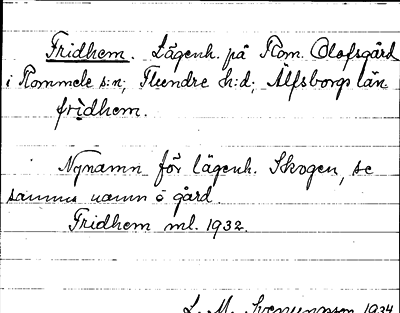 Fridhem. Lägenh. på Rom. Olofsgård
i Rommele s:n, Flundre h:d; Älfsborgs län
fridhem.
Nynamn för lägenh. Skogen, se
samma namn o gård.
Fridhem ml. 1932.
L. M. Svenungsson 1934